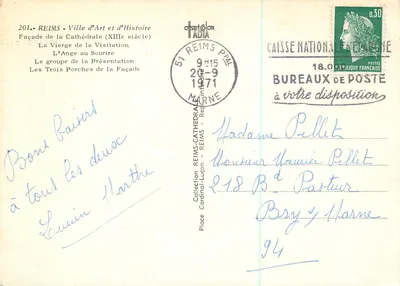 201.- REIMS - Ville d'Art et d'Histoire
Façade de la Cathédrale (XIIIe siècle)
La Vierge de la Visitation
L'Ange au Sourire
Le groupe de la Présentation
Les Trois Porches de la Façade
51 REIMS PPAL
9H15
20-9
1971
MARNE
CAISSE NATIONALE
18.0
BUREAUX DE POSTE
à votre disposition
0,30
POSTES
Collection REIMS-CATHÉDRALE
Place Cardinal-Luçon - REIMS
Bons baisers
à tous les deux
Lucien Marthe
Madame Pellet
Monsieur Maurice Pellet
218 Bd Pasteur
Bry s/ Marne
94